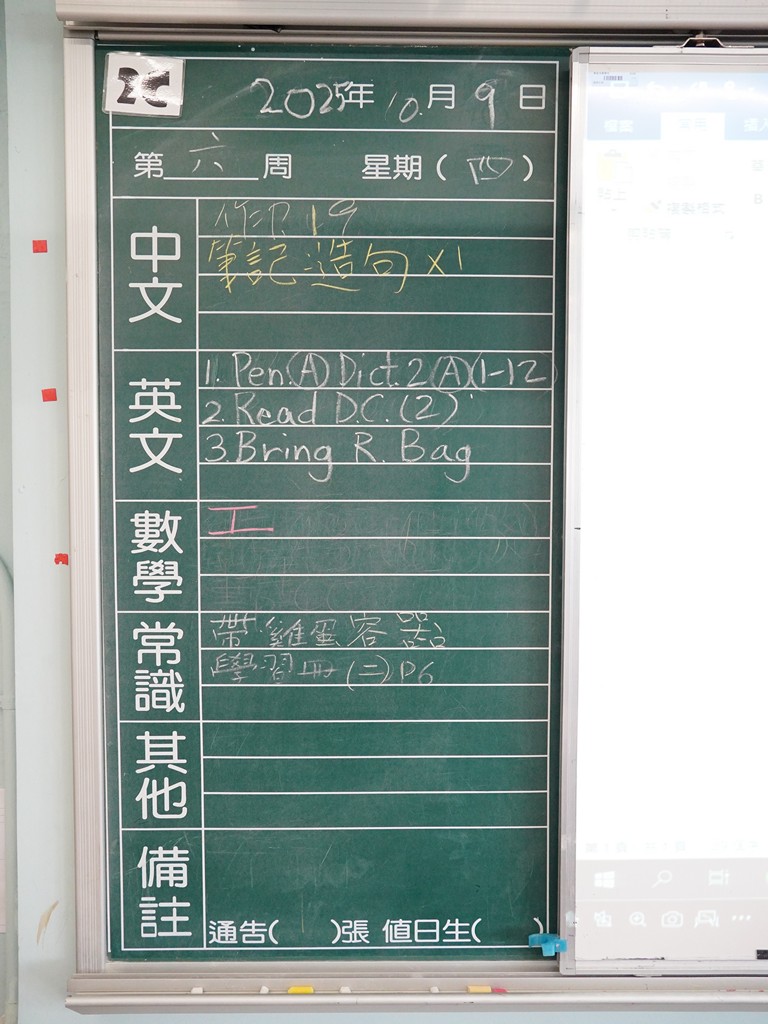 2C
2025年10月9日
第六周 星期(四)
中文
作 19
筆記造句x1
英文
1. Pen.(A) Dict.2(A)(1-12)
2. Read D.C.(2)
3. Bring R. Bag
數學
工
常識
帶雞蛋容器
學習冊(二)P6
其他
備註
通告( )張 值日生( )